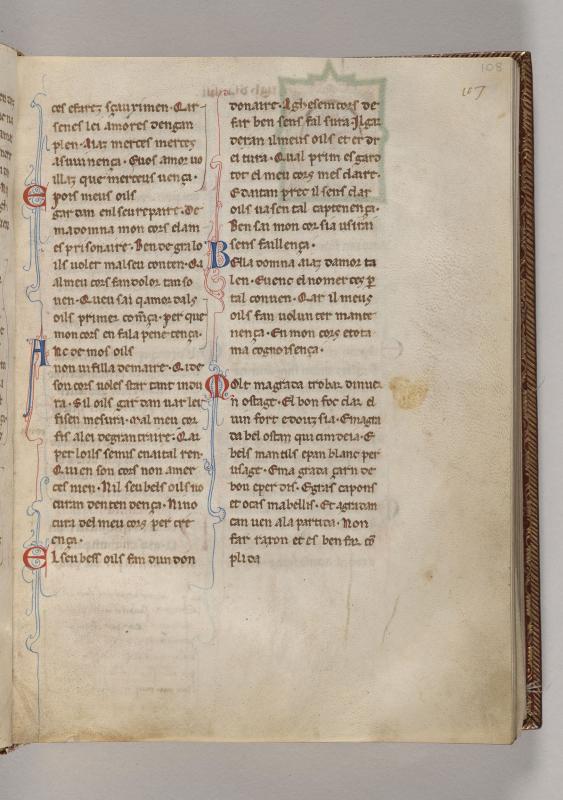 108
107
ces efarez sçauximen · Qar
senes lei amores dengan
plen · Aiaz merces mercez
asuuinença · Euos amor uo
illaz que merceus uença ·
Epois meus oils
gardan enlseu repaire · De
madomna mon cors clam
es prisonaire · Ben de gralo
ils uoler mal seu conten · Qa
almeu cors fan dolor tan so
uen · Queu sai qamor dals
oils primer comẽça · per que
mon cors en fala pene tença ·
Anc de mos oils
non ui filla demaire · Qi de
son cors voles star tant
ra · Sil oils gardan uar lei
fisen mesura · Mal meu cor
fis alei degran traire · Qar
per loils semis enaital ren ·
Qui en son cors non amer
ces nien · Nil seu bels oils no
curan den ten dença · Ni no
cura del meu cors per cre
ença ·
El seu bess oils fan dun don
donaire · Aghesemcors de
far ben sens fal sura Ilgar
deran ilmeus oils et er dre
ci tura · Qual prim esgard
tot el meu cors mes claire ·
E dautan prec il sens clar
oils ua sen tal captenença ·
Ben sai mon cor sia usirai
sens faillença ·
Bella domna aiaz damor ta
len · Euenc el nomer cez ꝑ
tal conuen · Qar il meus
oils fan uolun ter mante
nença · En mon cors e tota
ma cognoisença ·
Molt magrada trobar diuuer
n ostage · El bon foc clar el
uin fort e douz sia · Emagra
da bel ostau qui cundeia · E
bels mantils epan blanc per
usage · Ema grada çarn de
bou e per dis · Egras capons
et ocas mabellis · Et agradan
can uen ala partida · Non
far razon et es ben far cõ
plida